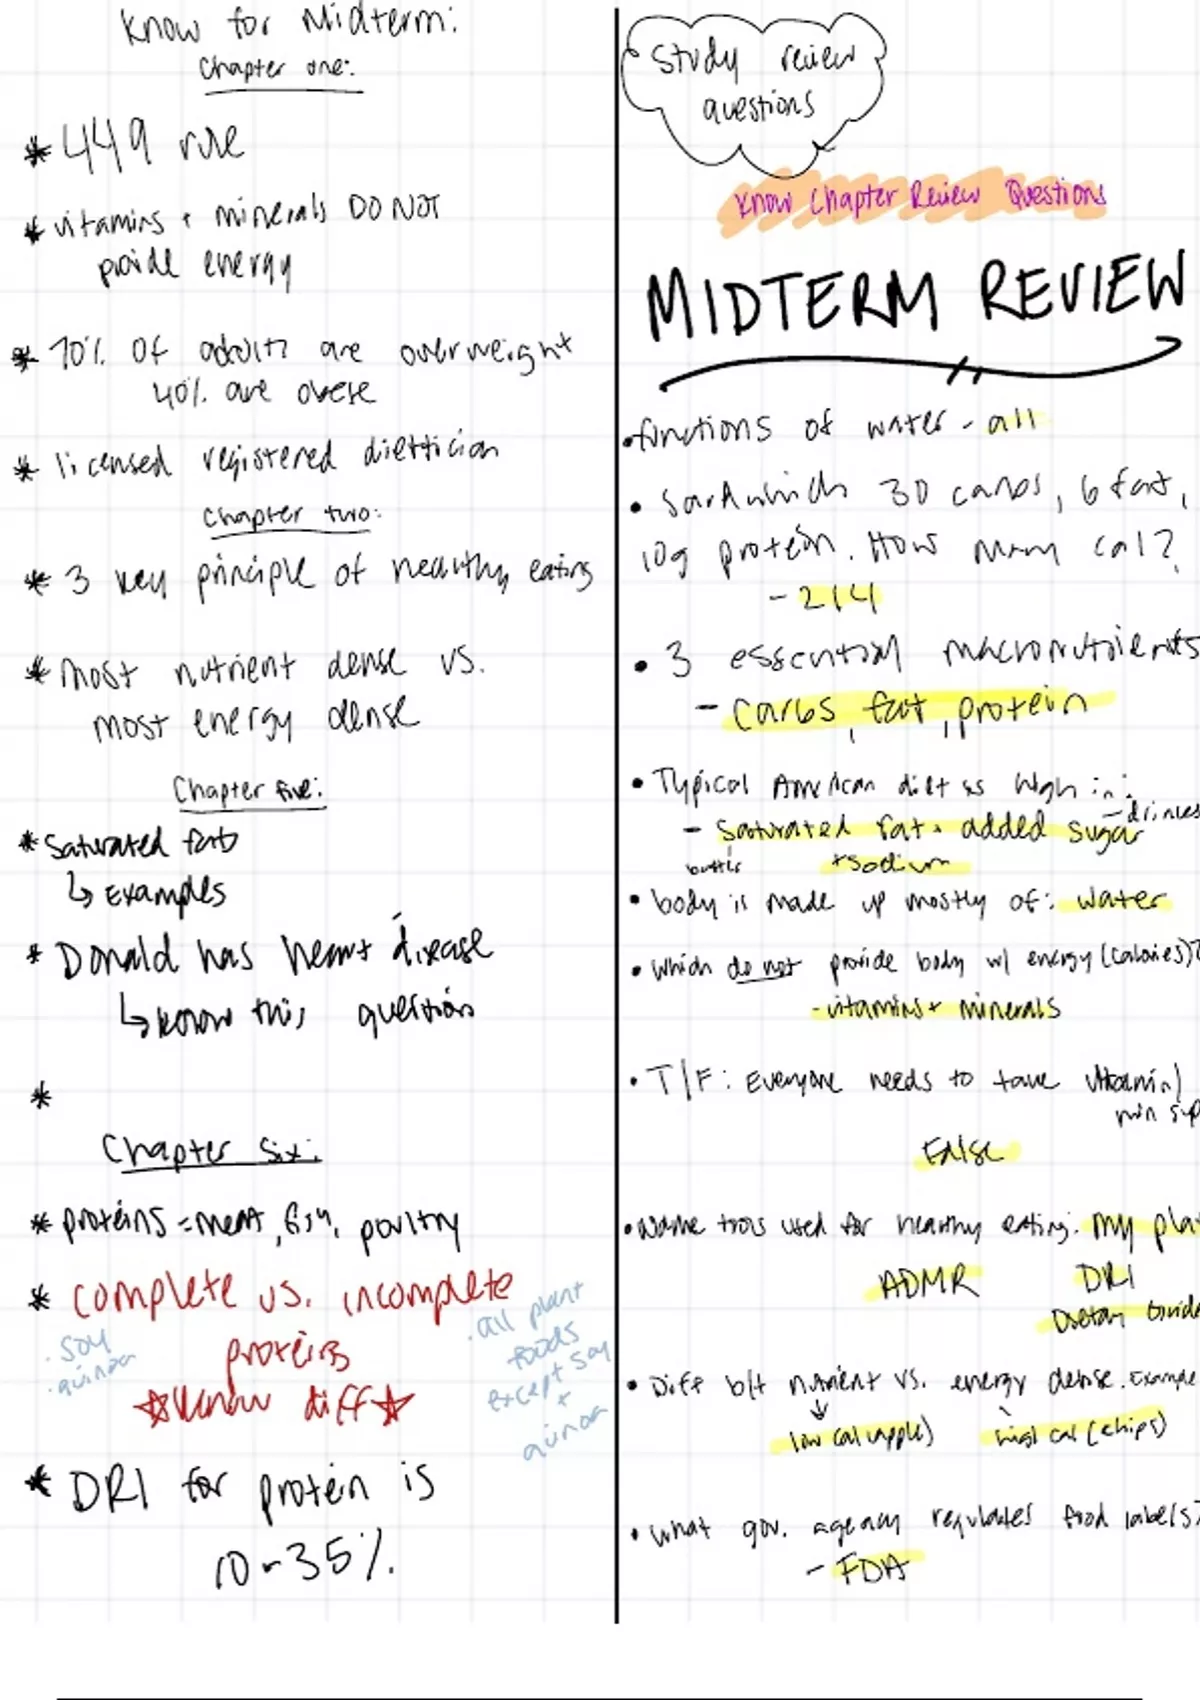 Know for Midterm:
Chapter one:
* 449 rule
* vitamins + minerals DO NOT
provide energy
* 70% of adults are overweight
40% are obese
* licensed registered dietitician
Chapter two:
* 3 key principle of healthy eating
* most nutrient dense vs.
most energy dense
Chapter five:
* Saturated fats
↳ Examples
* Donald has heart disease
↳ know this question
*
Chapter Six:
* proteins = meat, fish, poultry
* complete vs. incomplete
proteins
☆ know diff ☆
· soy
· quinoa
· all plant
foods
except soy
+
quinoa
* DRI for protein is
10-35%.
Study review
questions
Know Chapter Review Questions
MIDTERM REVIEW
• functions of water - all
• Sandwhich 30 carbs, 6 fat,
10g protein. How many cal?
- 214
• 3 essential macronutrients
- carbs, fat, protein
• Typical American diet is high in:
- saturated fat, added sugar
- drinks
butter
+ sodium
• body is made up mostly of: water
• Which do not provide body w/ energy (calories)?
- vitamins + minerals
• T/F: Everyone needs to take vitamin/
min sup
False
• Name tools used for healthy eating: My pla
ADMR DRI
Dietary Guide
• Diff b/t nutrient vs. energy dense. Example
low cal (apple) high cal (chips)
• What gov. agency regulates food labels?
- FDA